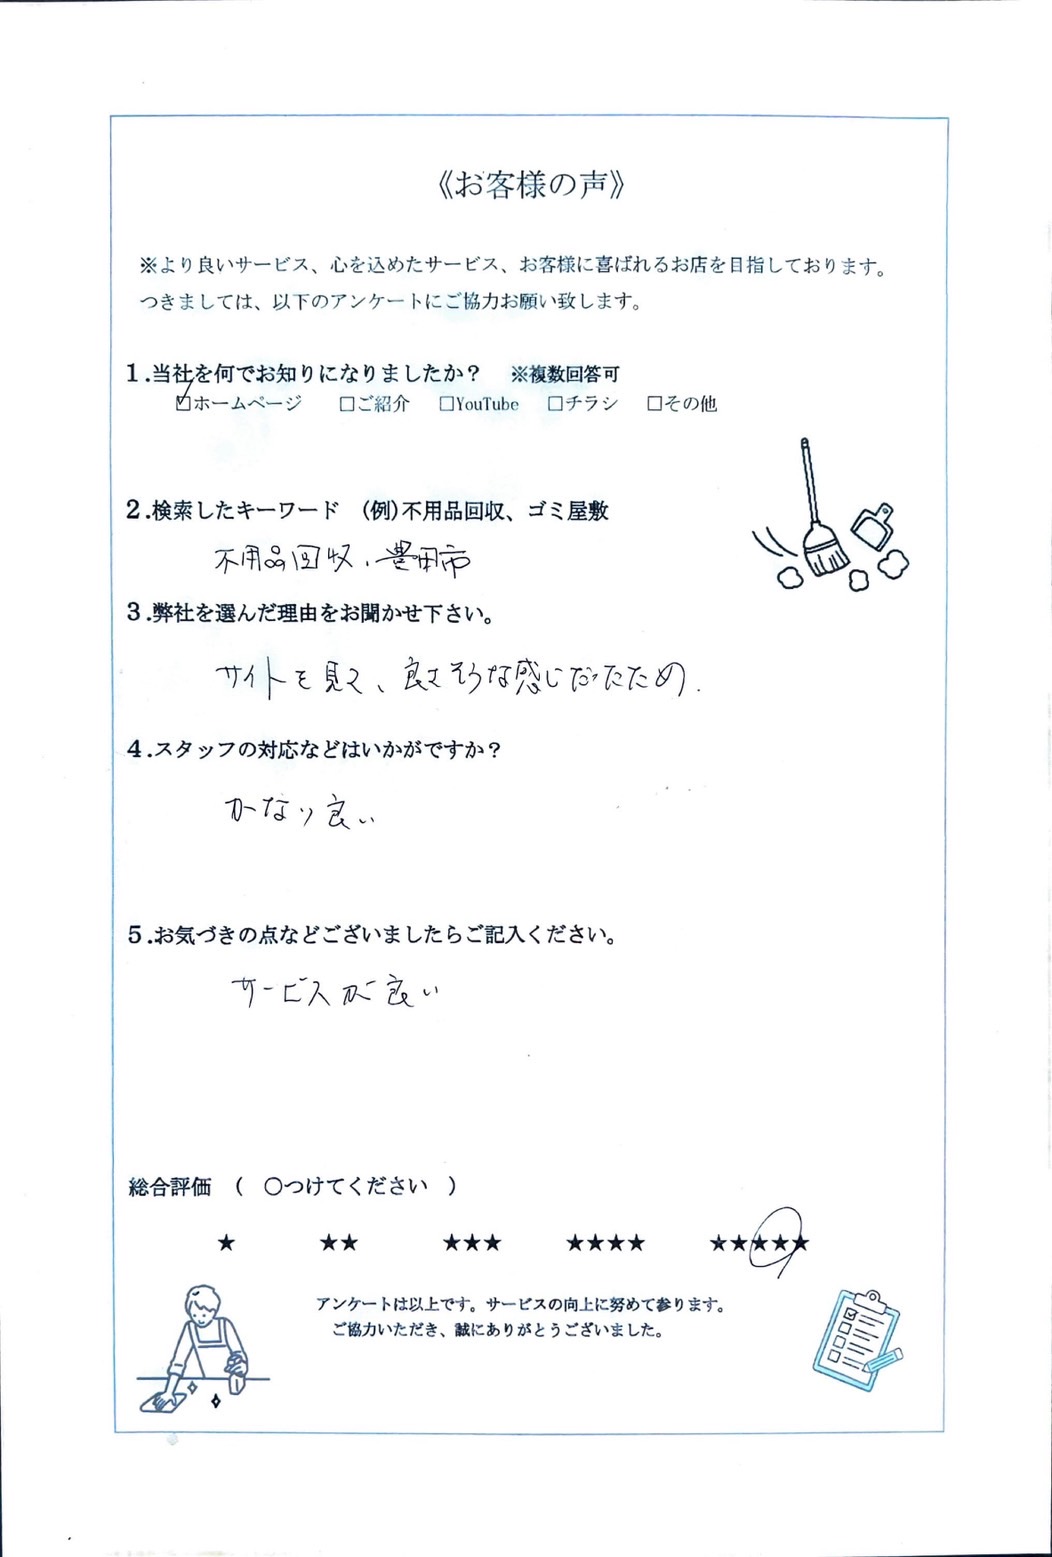 《お客様の声》
※より良いサービス、心を込めたサービス、お客様に喜ばれるお店を目指しております。
つきましては、以下のアンケートにご協力お願い致します。
1.当社を何でお知りになりましたか？ ※複数回答可
☑ホームページ □ご紹介 □YouTube □チラシ □その他
2.検索したキーワード (例)不用品回収、ゴミ屋敷
不用品回収、豊田市
3.弊社を選んだ理由をお聞かせ下さい。
サイトを見て、良さそうな感じだったため.
4.スタッフの対応などはいかがですか？
かなり良い
5.お気づきの点などございましたらご記入ください。
サービスが良い
総合評価 ( 〇つけてください )
★ ★★ ★★★ ★★★★ ★★★★★
アンケートは以上です。サービスの向上に努めて参ります。
ご協力いただき、誠にありがとうございました。